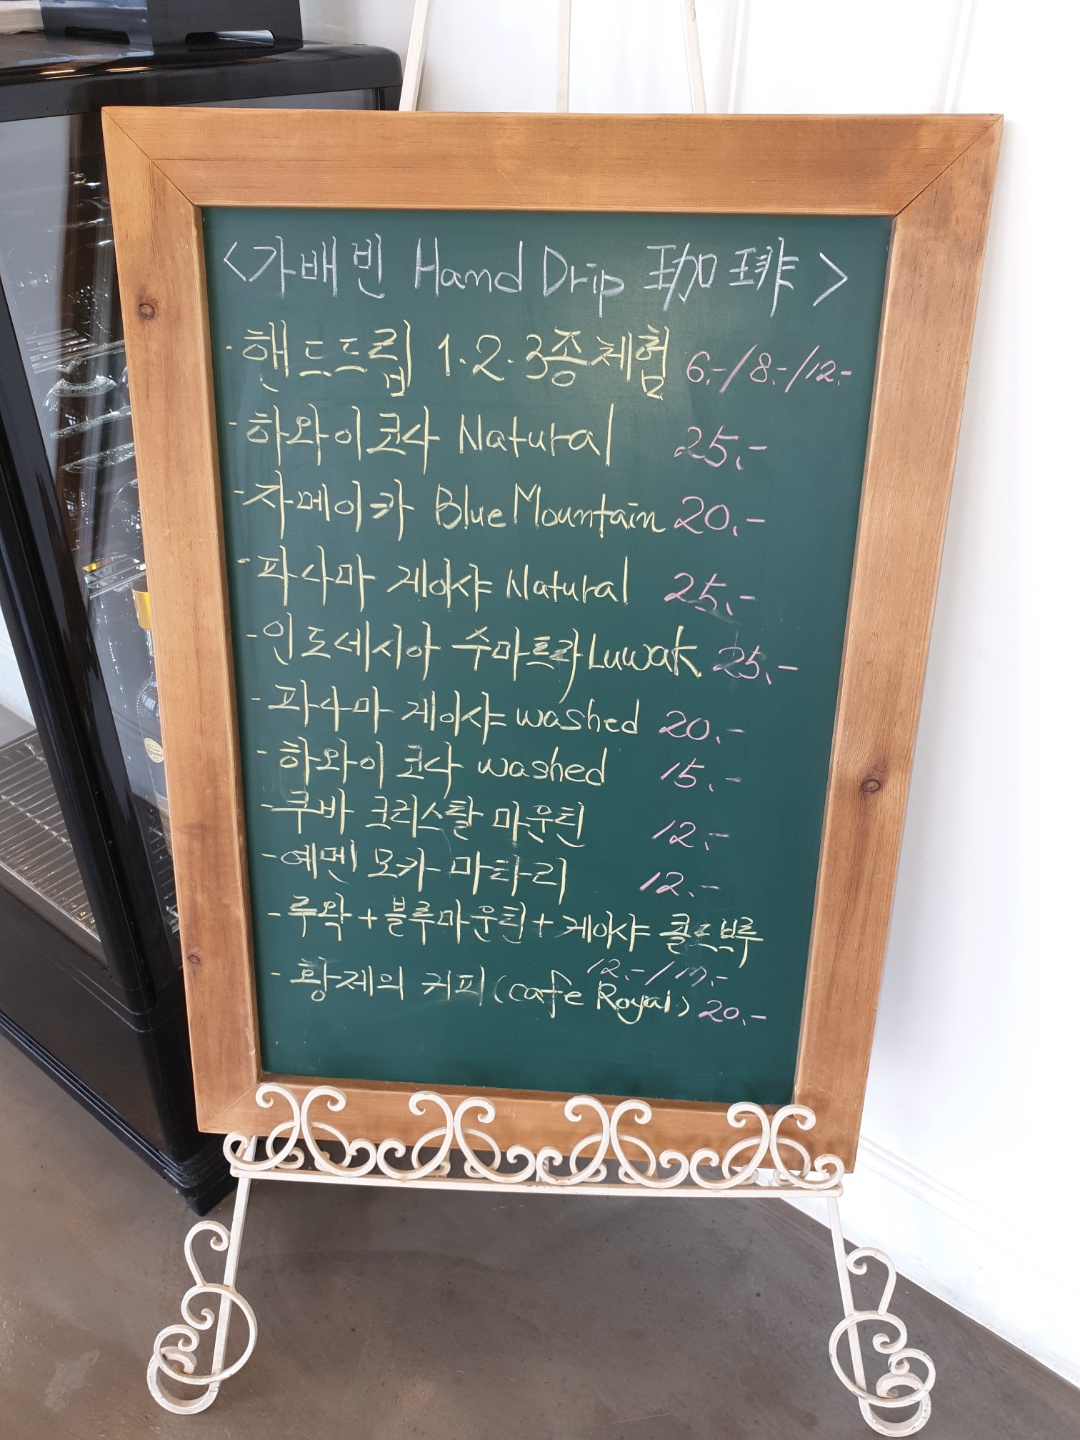 <가배빈 Hand Drip 珈琲>
- 핸드드립 1.2.3종체험 6.-/8.-/12.-
- 하와이코나 Natural 25.-
- 자메이카 Blue Mountain 20.-
- 파나마 게이샤 Natural 25.-
- 인도네시아 수마트라 Luwak 25.-
- 파나마 게이샤 washed 20.-
- 하와이 코나 washed 15.-
- 쿠바 크리스탈 마운틴 12.-
- 예멘 모카 마타리 12.-
- 루왁+블루마운틴+게이샤 콜드브루
12.-/17.-
- 황제의 커피(cafe Royal) 20.-